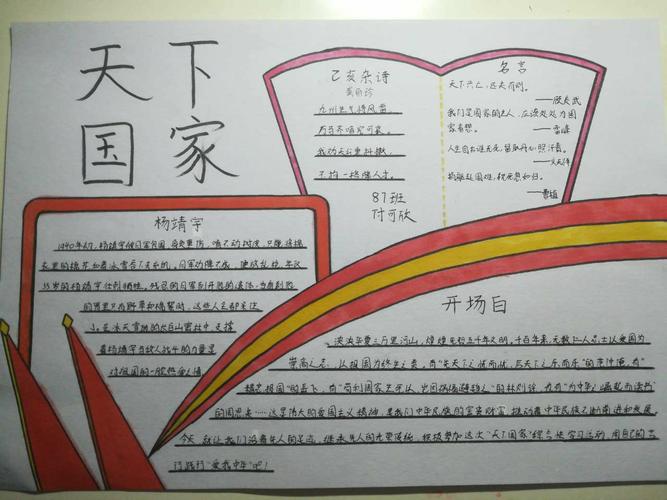 天下
国家
己亥杂诗
龚自珍
九州生气恃风雷
万马齐喑究可哀
我劝天公重抖擞
不拘一格降人才
87班
付可欣
名言
天下兴亡，匹夫有则。
——顾炎武
我们是国家的主人，应该处处为国
家着想。
——雷锋
人生自古谁无死，留取丹心照汗青。
——文天祥
捐躯赴国难，视死忽如归。
——曹植
杨靖宇
1940年2月，杨靖宇被日军包围
衣里的棉花和着冰雪吞下去
35岁的杨靖宇壮烈牺牲。残忍的日军剖开他的遗体，当看到胃
的胃里只有野草和棉絮时，这些人
，在冰天雪地的长白山密林中，支撑
着杨靖宇与敌人战斗的力量是
对祖国的一腔热血
开场白
泱泱华夏三万里河山，煌煌史册五千年文明。千百年来，无数仁人志士以爱国为
崇高之志，以报国为终生之责，有“先天下之忧而忧，后天下之乐而乐”的范仲淹，有“
精忠报国”的岳飞，有“苟利国家生死以，岂因祸福避趋之”的林则徐，也有“为中华之崛起而读书”
的周恩来……这是伟大的爱国主义精神，是我们中华民族的宝贵财富，推动着中华民族不断前进和发展。
今天，就让我们沿着先人的足迹，继承先人的光荣传统，积极参加这次“天下国家”综合性学习活动，用自己的言
行践行“爱我中华”吧！